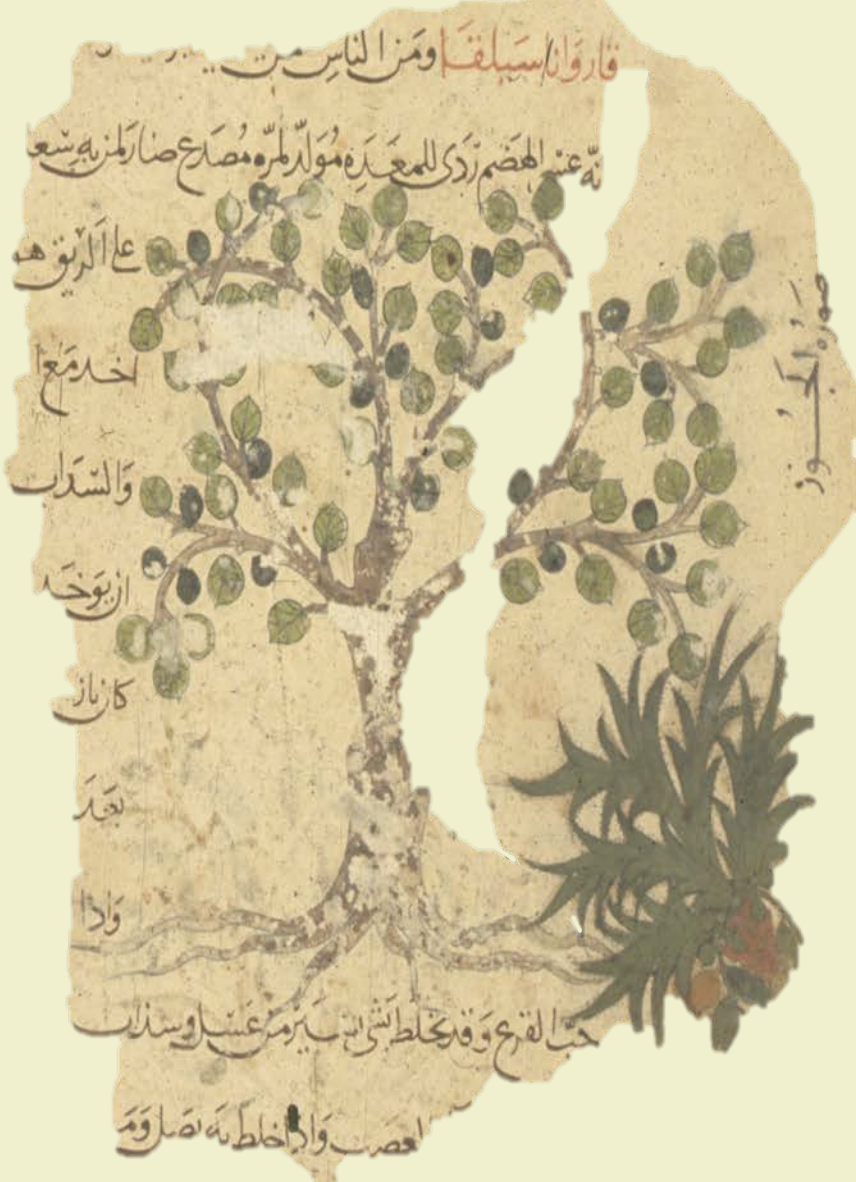 قاروانا سيلقا ومن الناس من
نه عسر الهضم ردى للمعدة مولد للمرة مصدع ضار لمن به سعا
على الريق هو
اخد معا
والسداب
ان يوخد
كان باز
بعد
واذا
حب القرع وقد يخلط بشى يسير من عسل وسذاب
العصب واذا خلط به بصل وم
صورة الجوز